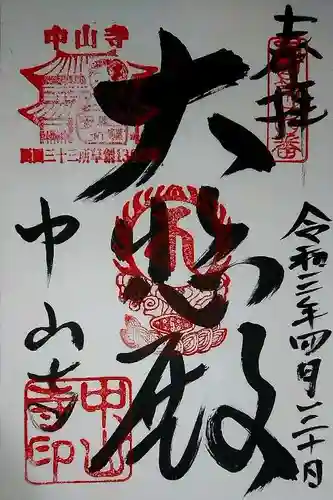 奉拝
令和三年四月二十日
大悲殿
中山寺
中山寺
三十三所草創1300年
中山寺印